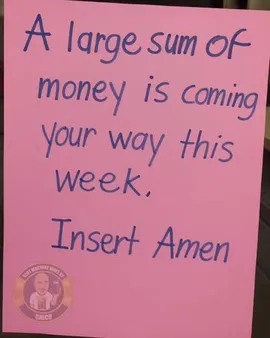 A large sum of
money is coming
your way this
week.
Insert Amen